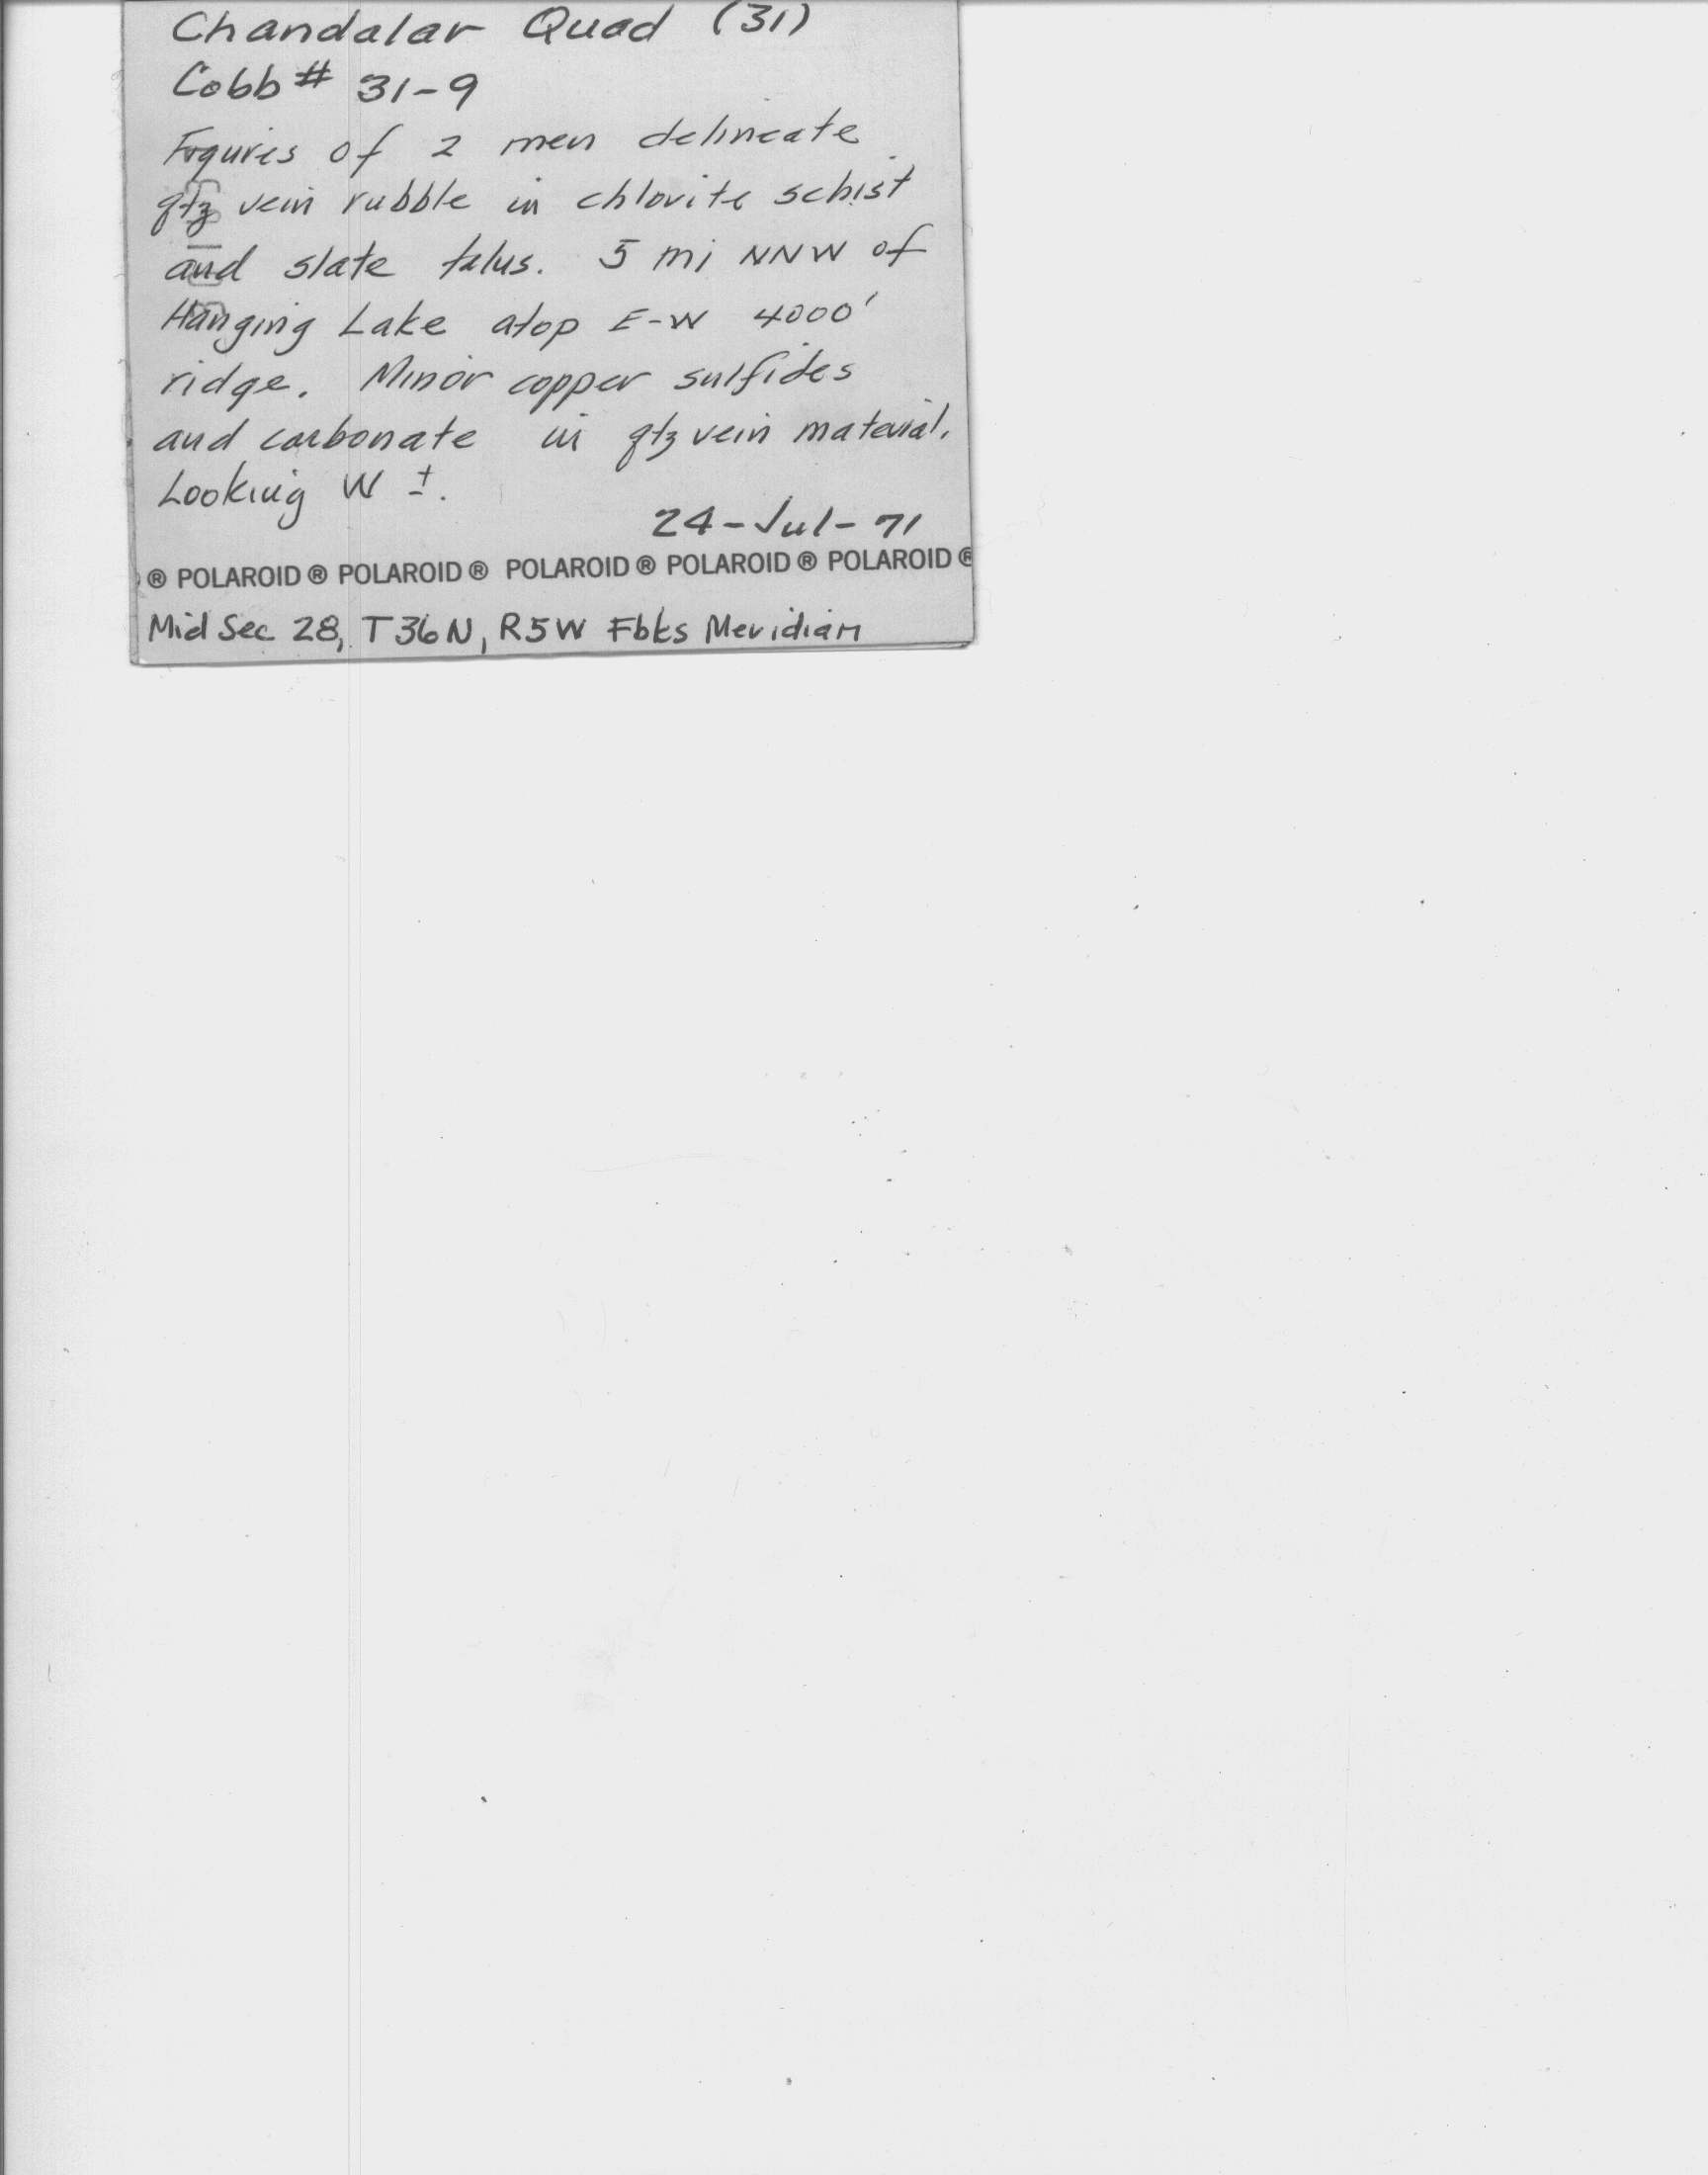 Chandalar Quad (31)
Cobb # 31-9
Figures of 2 men delineate
qtz vein rubble in chlorite schist
and slate talus. 5 mi NNW of
Hanging Lake atop E-W 4000'
ridge. Minor copper sulfides
and carbonate in qtz vein material.
Looking W ±.
24-Jul-71
® POLAROID ® POLAROID ® POLAROID ® POLAROID ® POLAROID ®
Mid Sec 28, T36N, R5W Fbks Meridian